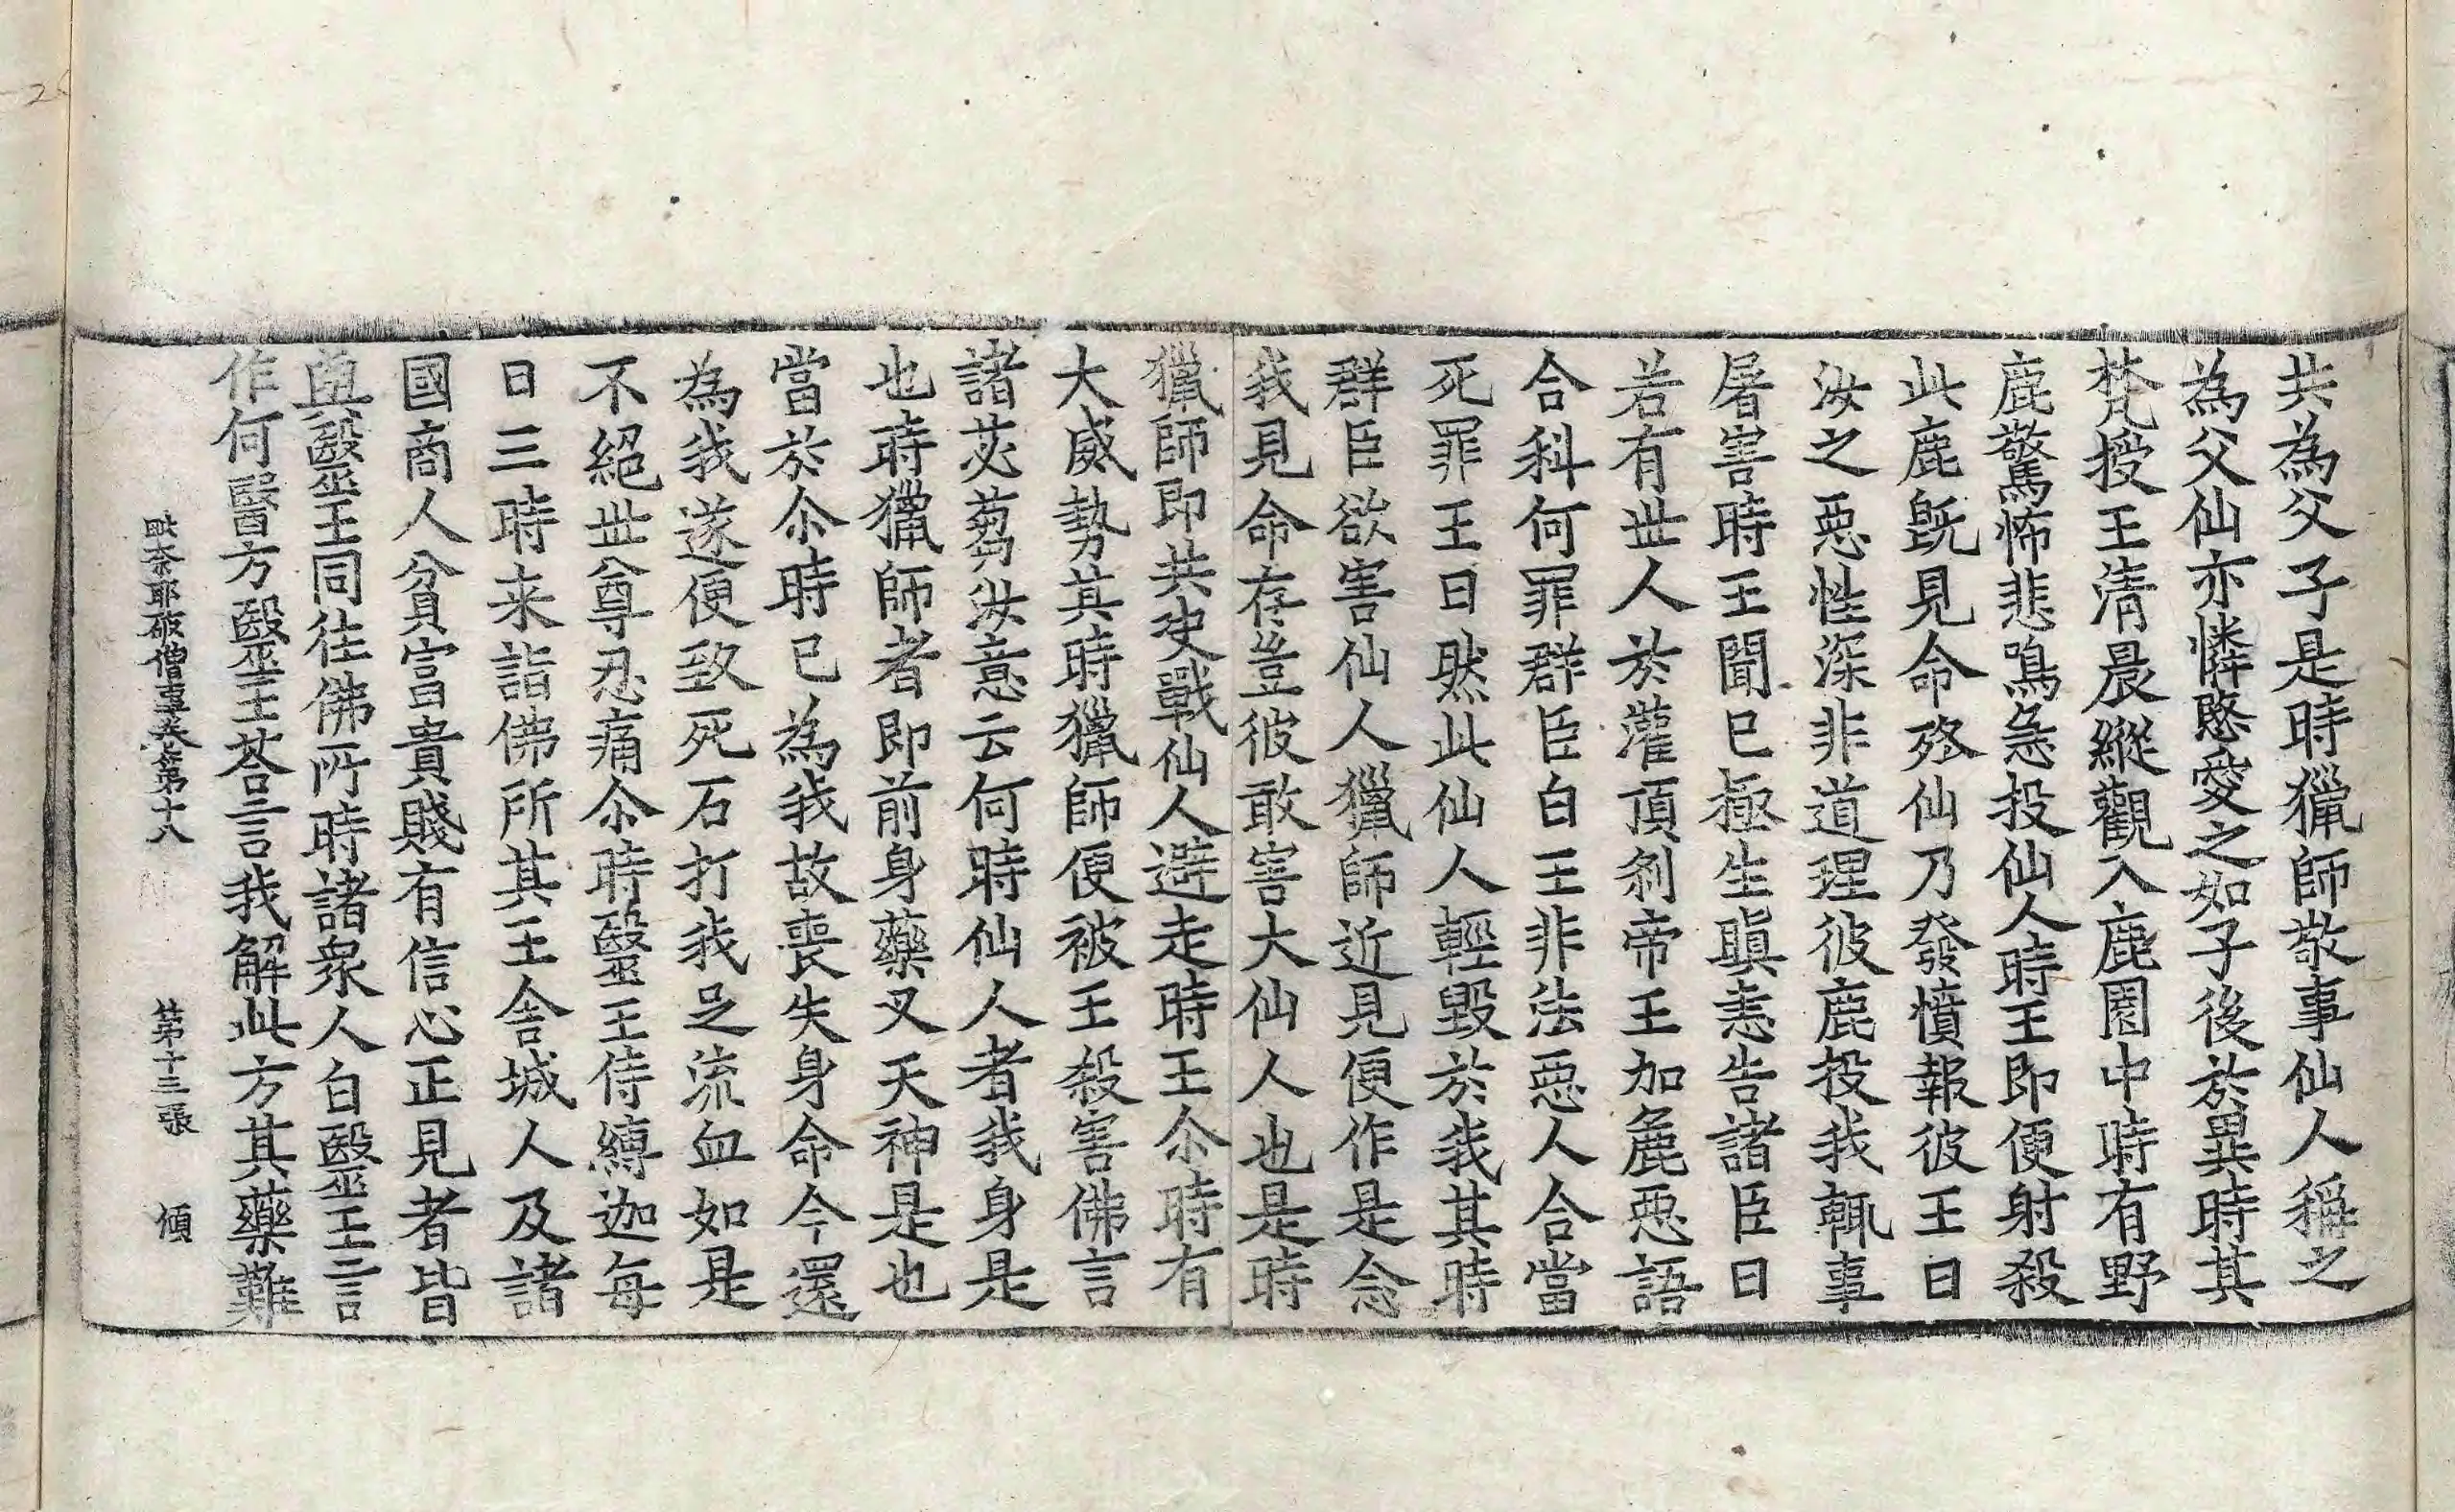 共為父子是時獵師敬事仙人稱之
為父仙亦憐愍愛之如子後於異時其
梵授王清晨縱觀入鹿園中時有野
鹿驚怖悲鳴急投仙人時王即便射殺
此鹿既見命殛仙乃發憤報彼王曰
汝之惡性深非道理彼鹿投我輒事
屠害時王聞已極生瞋恚告諸臣曰
若有世人於灌頂剎帝王加麁惡語
合科何罪群臣白王非法惡人合當
死罪王曰然此仙人輕毀於我其時
群臣欲害仙人獵師近見便作是念
我見命存豈彼敢害大仙人也是時
獵師即共史戰仙人避走時王尒時有
大威勢其時獵師便被王殺害佛言
諸苾蒭汝意云何時仙人者我身是
也時獵師者即前身藥叉天神是也
當於尒時已為我故喪失身命今還
為我遂便致死石打我足流血如是
不絕世尊忍痛尒時毉王侍縛迦每
日三時来詣佛所其王舍城人及諸
國商人貧富貴賤有信心正見者皆
與毉王同往佛所時諸衆人白毉王言
作何醫方毉王荅言我解此方其藥難
毗奈耶破僧事卷第十八 第十三張 傾